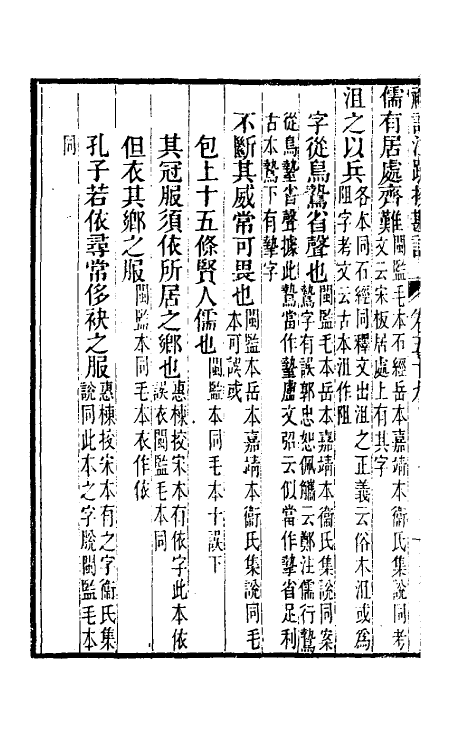 儒有居處齊難閩監毛本石經岳本嘉靖本衛氏集說同考
文云宋板居處上有其字
沮之以兵各本同石經同釋文出沮之正義云俗本沮或爲
阻字考文云古本沮作阻
字從鳥鷙省聲也閩監毛本岳本嘉靖本衛氏集說同案
鷙字有誤郭忠恕佩觿云鄭注儒行鷙
從鳥摯省聲據此鷙當作摯盧文弨云似當作摯省足利
古本鷙下有摯字
不斷其威常可畏也閩監本岳本嘉靖本衛氏集說同毛
本可誤或
包上十五條賢人儒也閩監本同毛本十誤下
其冠服須依所居之鄉也惠棟挍宋本有依字此本依
誤衣閩監毛本同
但衣其鄉之服閩監本同毛本衣作依
孔子若依尋常侈袂之服惠棟挍宋本有之字衛氏集
說同此本之字脫閩監毛本
同